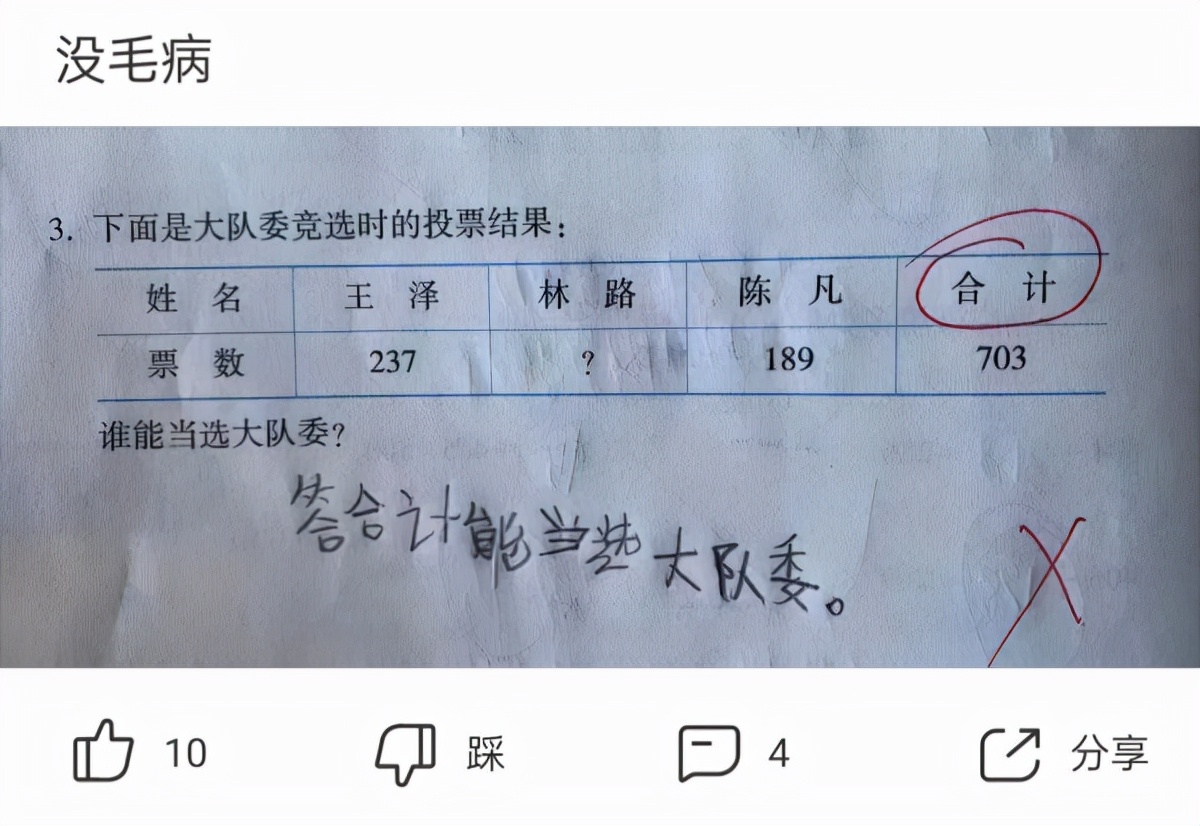 没毛病
3. 下面是大队委竞选时的投票结果：
姓 名 王 泽 林 路 陈 凡 合 计
票 数 237 ? 189 703
谁能当选大队委？
答合计能当选大队委。
10 踩 4 分享